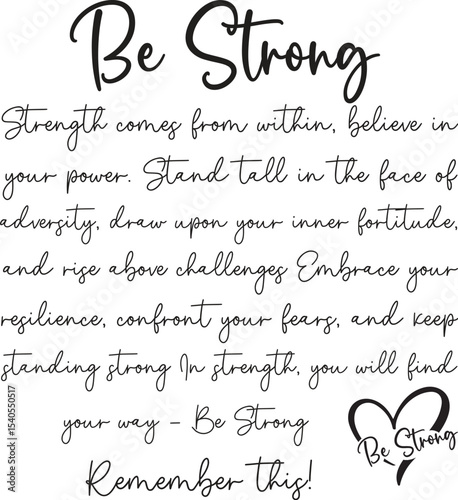 Be Strong
Strength comes from within, believe in
your power. Stand tall in the face of
adversity, draw upon your inner fortitude,
and rise above challenges Embrace your
resilience, confront your fears, and keep
standing strong In strength, you will find
your way - Be Strong
Be Strong
Remember this!
Adobe Stock | #1540550517